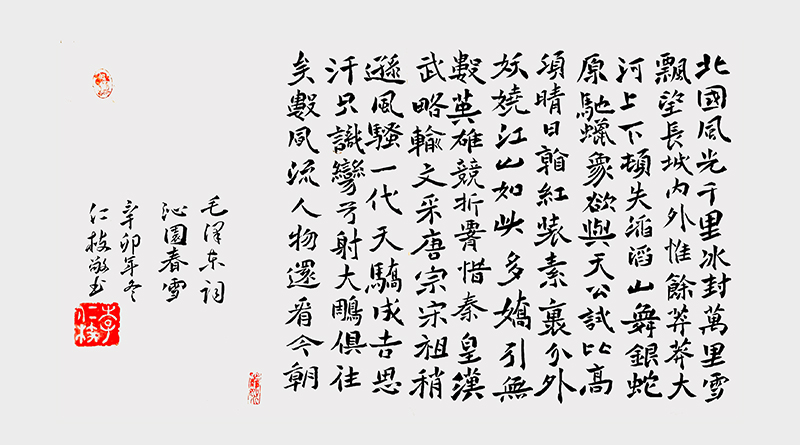 北國風光千里冰封萬里雪
飄望長城內外惟餘莽莽大
河上下頓失滔滔山舞銀蛇
原馳蠟象欲與天公試比高
須晴日看紅裝素裹分外
妖嬈江山如此多嬌引無
數英雄競折腰惜秦皇漢
武略輸文采唐宗宋祖稍
遜風騷一代天驕成吉思
汗只識彎弓射大鵰俱往
矣數風流人物還看今朝
毛泽东词
沁園春雪
辛卯年冬
仁枝敬书
李仁枝